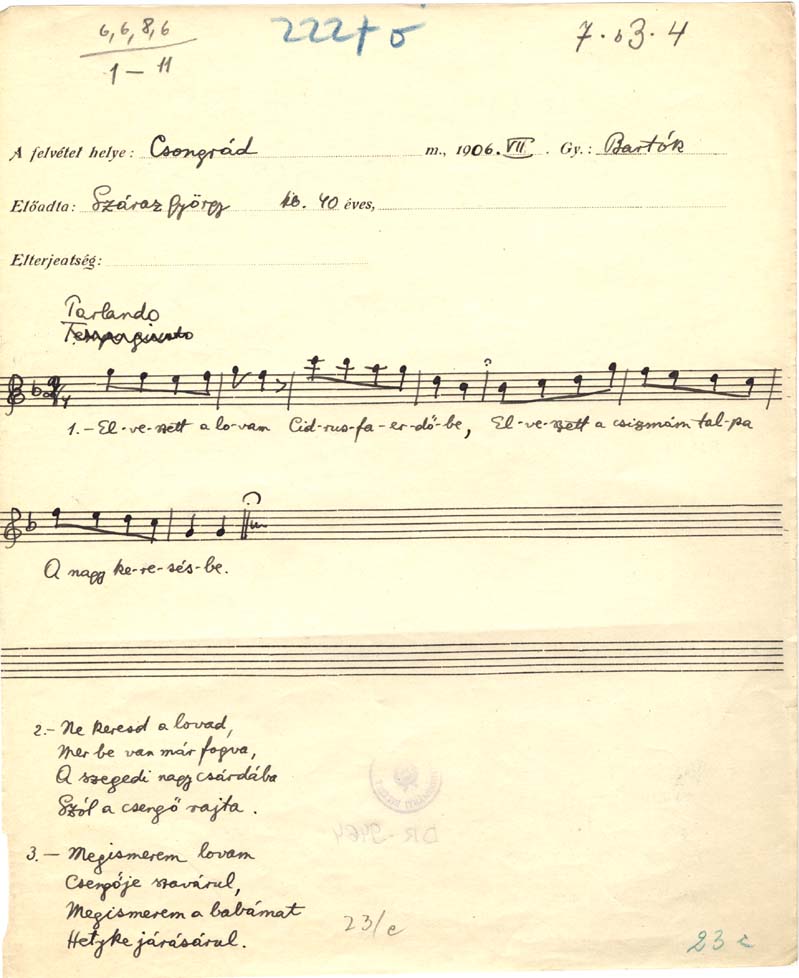 6, 6, 8, 6
1 – 11
7 · b3 · 4
A felvétel helye: Csongrád m., 1906. VII. Gy.: Bartók
Előadta: Száraz György kb. 40 éves,
Elterjedtség:
Parlando
1.– El-ve-szett a lo-vam Cid-rus-fa-er-dő-be, El-ve-szett a csizmám tal-pa
A nagy ke-re-sés-be.
2.– Ne keresd a lovad,
Mer be van már fogva,
A szegedi nagy csárdába
Szól a csengő rajta.
3.– Megismerem lovam
Csengője szavárul,
Megismerem a babámat
Hetyke járásárul.
23/c
23 c